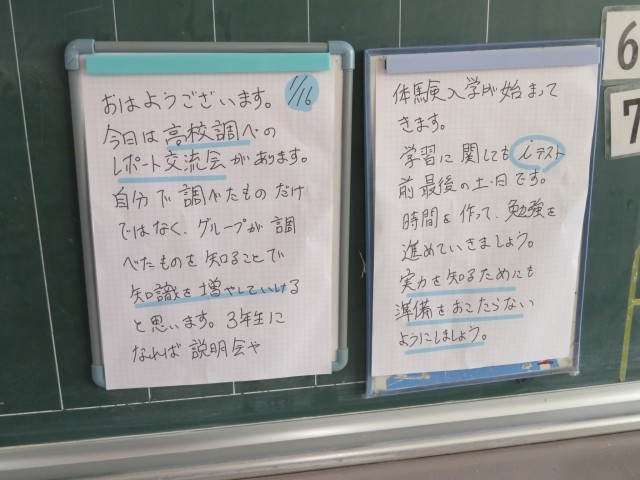 1/16
おはようございます。
今日は高校調べの
レポート交流会があります。
自分で調べたものだけ
ではなく、グループが調
べたものを知ることで
知識を増やしていける
と思います。3年生に
なれば説明会や
体験入学が始まって
きます。
学習に関してもiテスト
前最後の土・日です。
時間を作って、勉強を
進めていきましょう。
実力を知るためにも
準備をおこたらない
ようにしましょう。
6
7